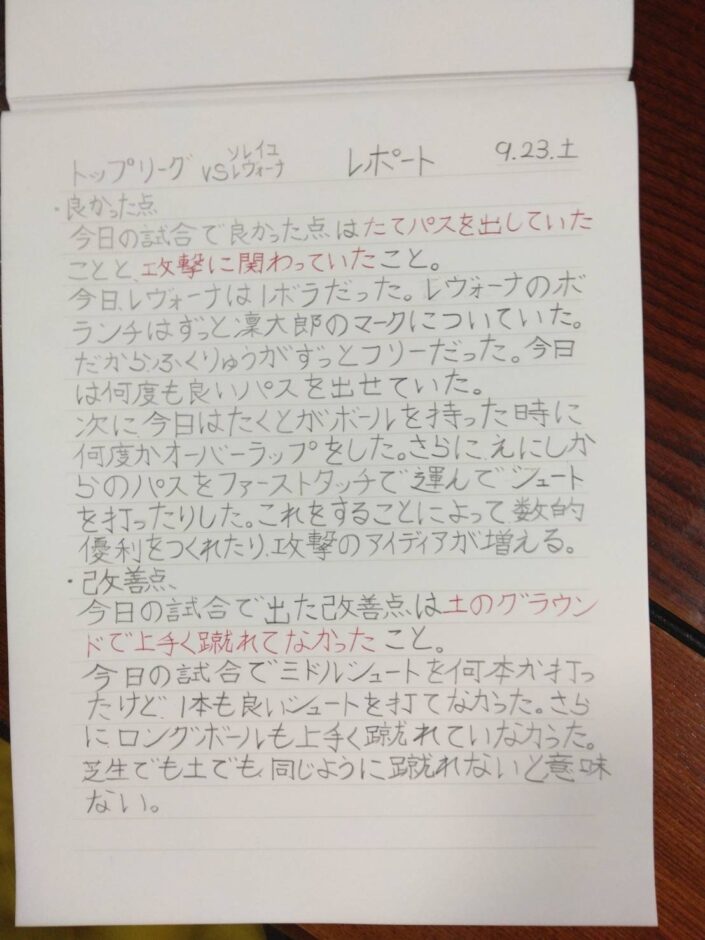 トップリーグ vs ソレイユレヴォーナ レポート 9.23.土
・良かった点
今日の試合で良かった点はたてパスを出していた
ことと、攻撃に関わっていたこと。
今日、レヴォーナは1ボラだった。レヴォーナのボ
ランチはずっと凜太郎のマークについていた。
だから、ふくりゅうがずっとフリーだった。今日
は何度も良いパスを出せていた。
次に、今日はたくとがボールを持った時に
何度かオーバーラップをした。さらに、えにしか
らのパスをファーストタッチで運んでシュート
を打ったりした。これをすることによって数的
優利をつくれたり、攻撃のアイディアが増える。
・改善点、
今日の試合で出た改善点は土のグラウン
ドで上手く蹴れてなかったこと。
今日の試合でミドルシュートを何本か打っ
たけど、1本も良いシュートを打てなかった。さら
にロングボールも上手く蹴れていなかった。
芝生でも土でも、同じように蹴れないと意味
ない。